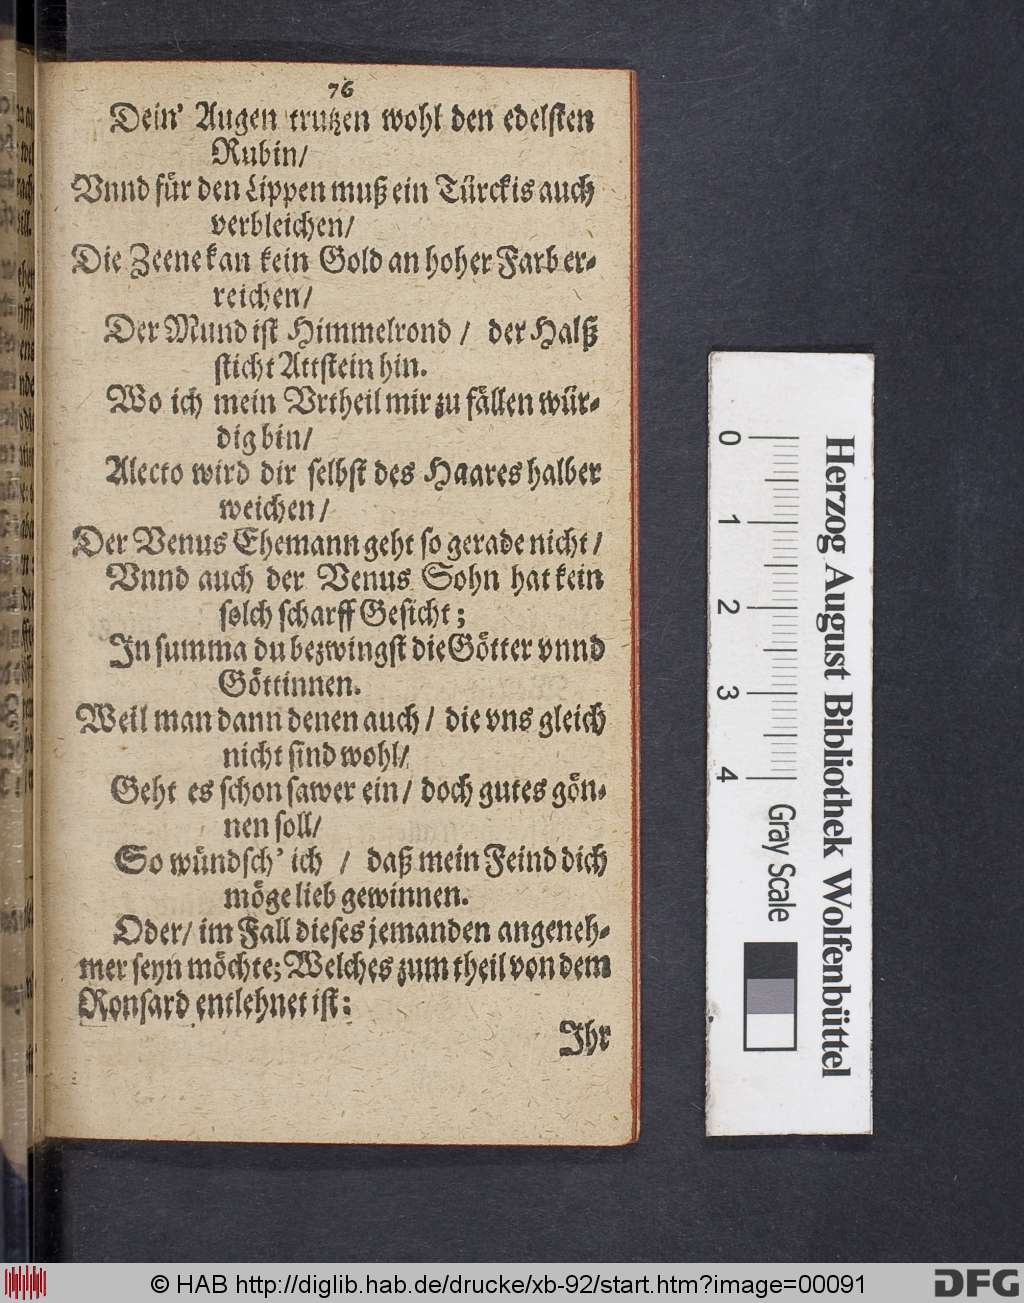 76
Dein' Augen trutzen wohl den edelsten
Rubin/
Vnnd für den Lippen muß ein Türckis auch
verbleichen/
Die Zeene kan kein Gold an hoher Farb er-
reichen/
Der Mund ist Himmelrond / der Halß
sticht Attstein hin.
Wo ich mein Vrtheil mir zu fällen wür-
dig bin/
Alecto wird dir selbst des Haares halber
weichen/
Der Venus Ehemann geht so gerade nicht/
Vnnd auch der Venus Sohn hat kein
solch scharff Gesicht;
In summa du bezwingst die Götter vnnd
Göttinnen.
Weil man dann denen auch/ die vns gleich
nicht sind wohl/
Geht es schon sawer ein/ doch gutes gön-
nen soll/
So wündsch' ich / daß mein Feind dich
möge lieb gewinnen.
Oder/ im Fall dieses jemanden angeneh-
mer seyn möchte; Welches zum theil von dem
Ronsard entlehnet ist:
Ihr
Herzog August Bibliothek Wolfenbüttel
0 1 2 3 4 Gray Scale
© HAB http://diglib.hab.de/drucke/xb-92/start.htm?image=00091
DFG